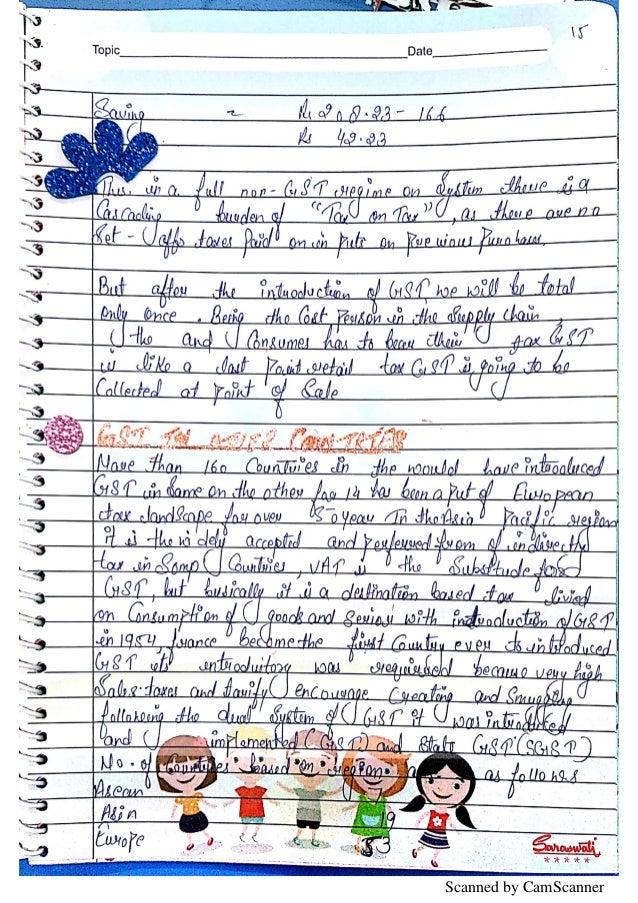 15
Topic Date
Saving = Rs 208.23 - 166
Rs 42.23
Thus in a full non-GST regime on System there is a
Cascading burden of "Tax on Tax", as there are no
Set - offs taxes Paid on in puts on Previous Purchases.
But after the introduction of GST we will be total
only once. Being the Cost Person in the Supply chain,
the and Consumes has to bear their tax GST
is like a last Point retail tax GST is going to be
Collected at Point of Sale
GST IN OTHER COUNTRIES
More Than 160 Countries in the would have introduced
GST in Same on the other for 14 has been a Put of European
tax landscape for over 50 year In the Asia Pacific region
it is the widely accepted and Perferred from of indirectly
tax in Some Countries, VAT is the Substitude for
GST, but busically it is a destination based tax livied
on Consumption of goods and Sevies with introduction of GST
in 1954, france became the first Country ever to introduced
GST its introduitory was required because very high
Sales taxes and tarify encourage Creating and Smuggling
following the dual System of GST it was introduced
and implemented (GST) and State GST (SGST)
No. of Countries based on region as follows
Asean
Asin 19
Europe 53
Saraswati
Scanned by CamScanner